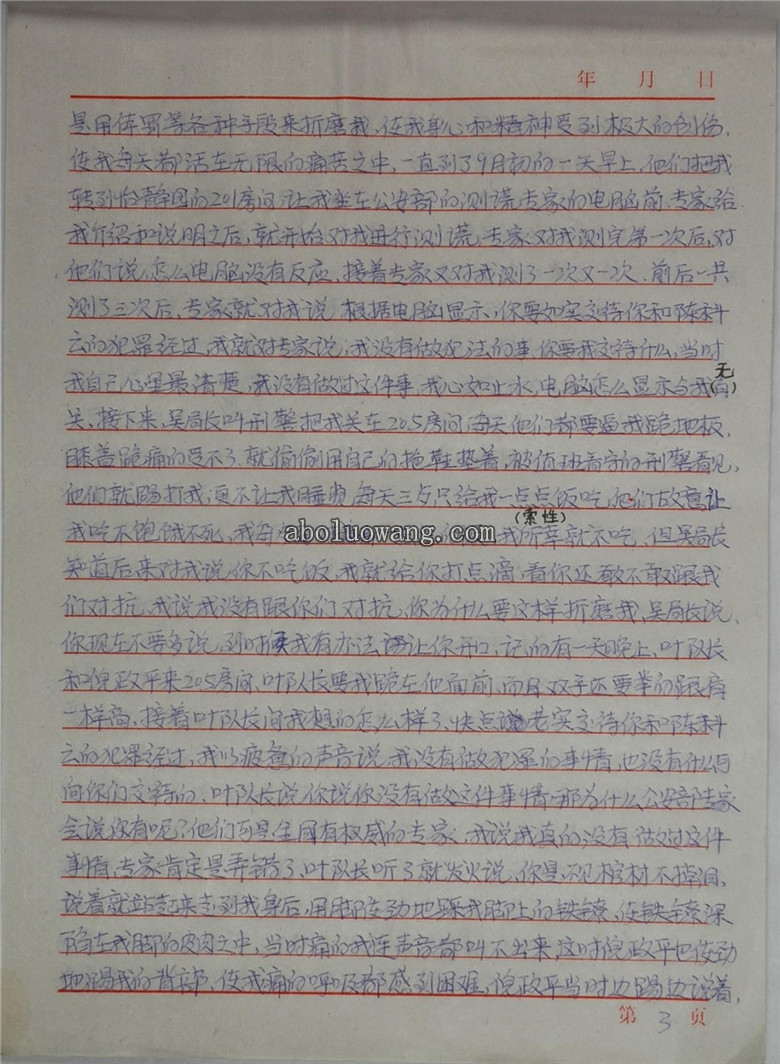 年 月 日
是用体罚等各种手段来折磨我，使我身心和精神受到极大的创伤，
使我每天都活在无限的痛苦之中，一直到了9月初的一天早上，他们把我
转到怡静园的201房间，让我坐在公安部的测谎专家的电脑前，专家给
我介绍和说明之后，就开始对我进行测谎，专家对我测完第一次后，对
他们说，怎么电脑没有反应，接着专家又对我测了一次又一次，前后一共
测了三次后，专家就对我说，根据电脑显示，你要如实交待你和陈科
云的犯罪经过，我就对专家说，我没有做犯法的事，你要我交待什么，当时
我自己心里最清楚，我没有做过这件事，我心如止水，电脑怎么显示与我(无)
关，接下来，吴局长叫刑警把我关在205房间，每天他们都要逼我跪地板，
膝盖跪痛的受不了，就偷偷用自己的拖鞋垫着，被值班看守的刑警看见，
他们就踢打我，更不让我睡觉，每天三歺只给我一点点饭吃，他们故意让
我吃不饱饿不死，我每 我所幸就不吃，但吴局长
(索性)
aboluowang.com
知道后来对我说，你不吃饭，我就给你打点滴，看你还敢不敢跟我
们对抗，我说我没有跟你们对抗，你为什么要这样折磨我，吴局长说，
你现在不要多说，到时候我有办法让你开口，记的有一天晚上，叶队长
和倪政平来205房间，叶队长要我跪在他面前，而且双手还要举的跟肩
一样高，接着叶队长问我想的怎么样了，快点说老实交待你和陈科
云的犯罪经过，我以疲惫的声音说，我没有做犯罪的事情，也没有什么可
向你们交待的，叶队长说你说你没有做这件事情，那为什么公安部专家
会说你有呢？他们可是全国有权威的专家，我说我真的没有做过这件
事情，专家肯定是弄错了，叶队长听了就发火说，你是不见棺材不掉泪，
说着就站起来走到我身后，用脚使劲地踩我脚上的铁镣，使铁镣深
陷在我脚的皮肉之中，当时痛的我连声音都叫不出来，这时倪政平也使劲
地踢我的背部，使我痛的呼吸都感到困难，倪政平当时边踢边说着，
第 3 页